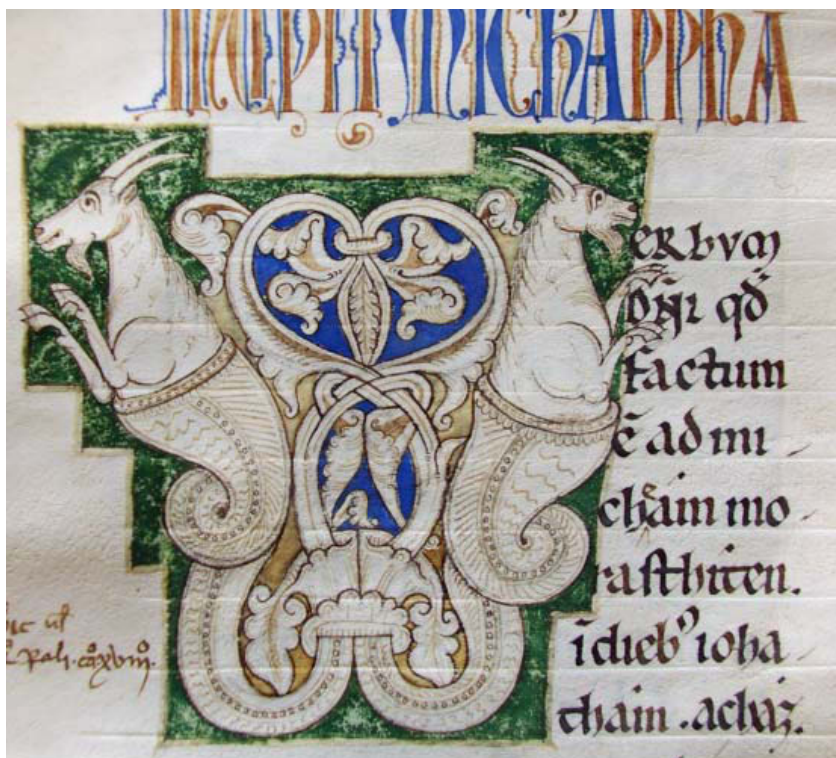 INCIPIT MICHA PPHA
VERBVM
DÑI qđ
factum
ē ad mi
chēam mo
rasthiten.
ī dieb⁹ ioha
tham .achaz.